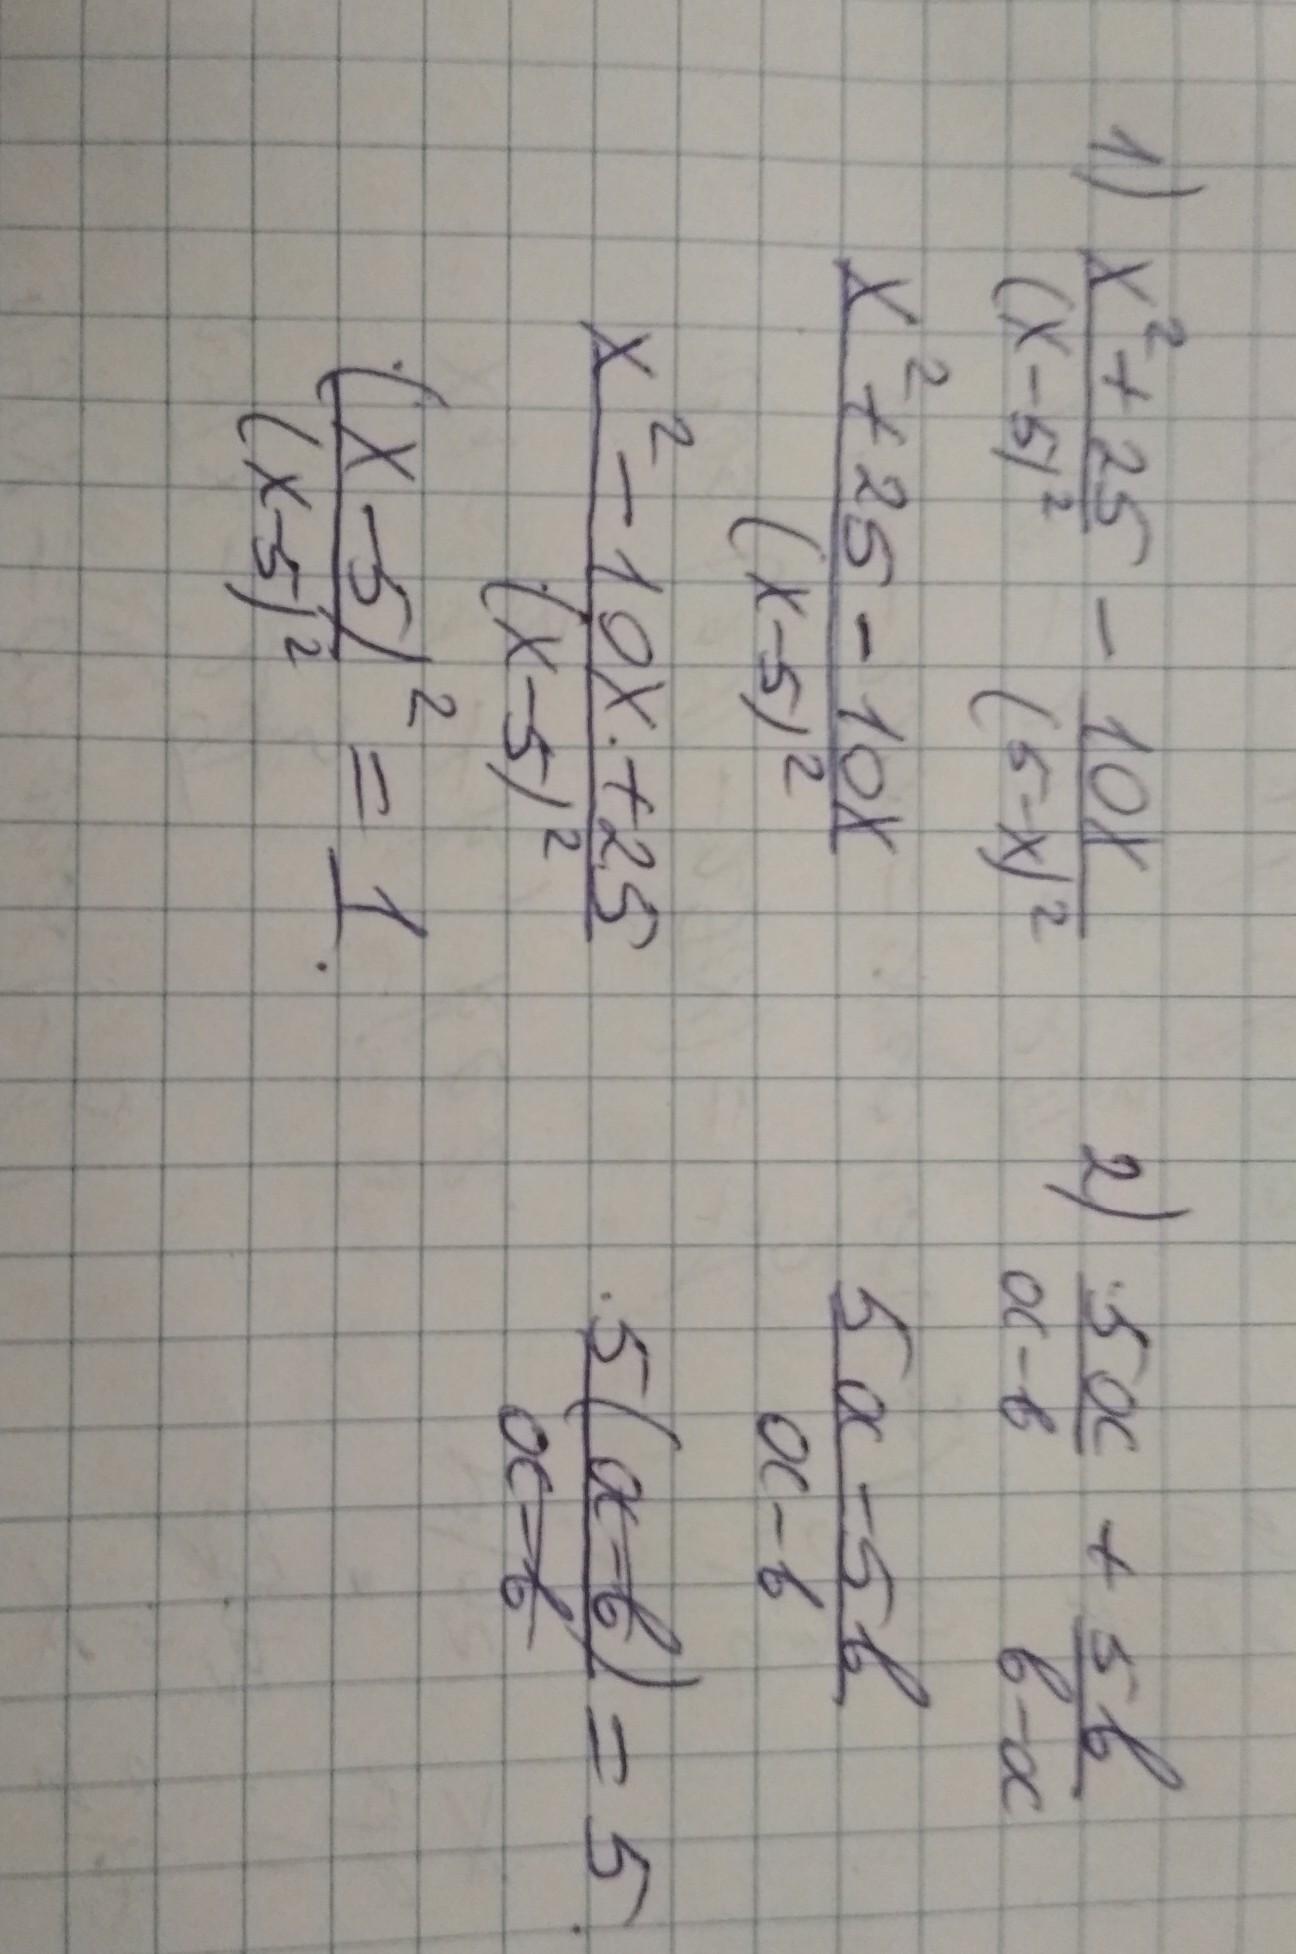 1) (x² + 25)/(x - 5)² - 10x/(5 - x)²
(x² + 25 - 10x)/(x - 5)²
(x² - 10x + 25)/(x - 5)²
(x - 5)²/(x - 5)² = 1.
2) 5a/(a - b) + 5b/(b - a)
(5a - 5b)/(a - b)
5(a - b)/(a - b) = 5.